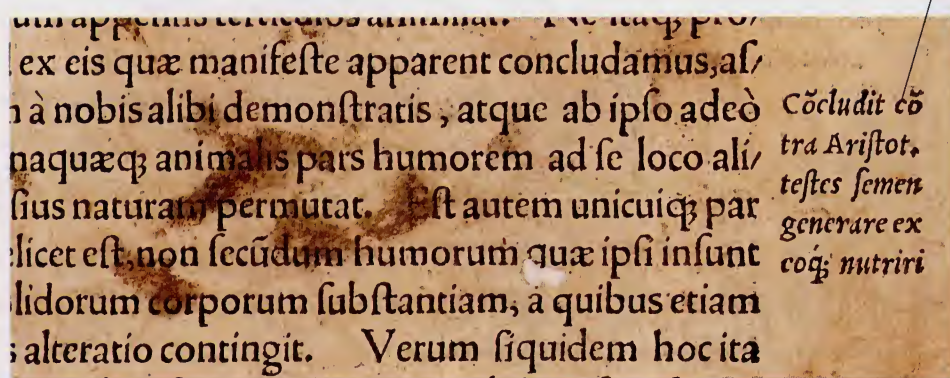 appensis testiculos animmat. Ne itaq; pro/
ex eis quæ manifeſte apparent concludamus,aſ/
à nobis alibi demonſtratis, atque ab ipſo adeò
naquæq; animalis pars humorem ad ſe loco ali/
ſius naturam permutat. Eſt autem unicuiq; par
licet eſt, non ſecũdum humorum quæ ipſi inſunt
lidorum corporum ſubſtantiam, a quibus etiam
alteratio contingit. Verum ſiquidem hoc ita
Cõcludit cõ
tra Ariſtot.
teſtes ſemen
generare ex
coq; nutriri